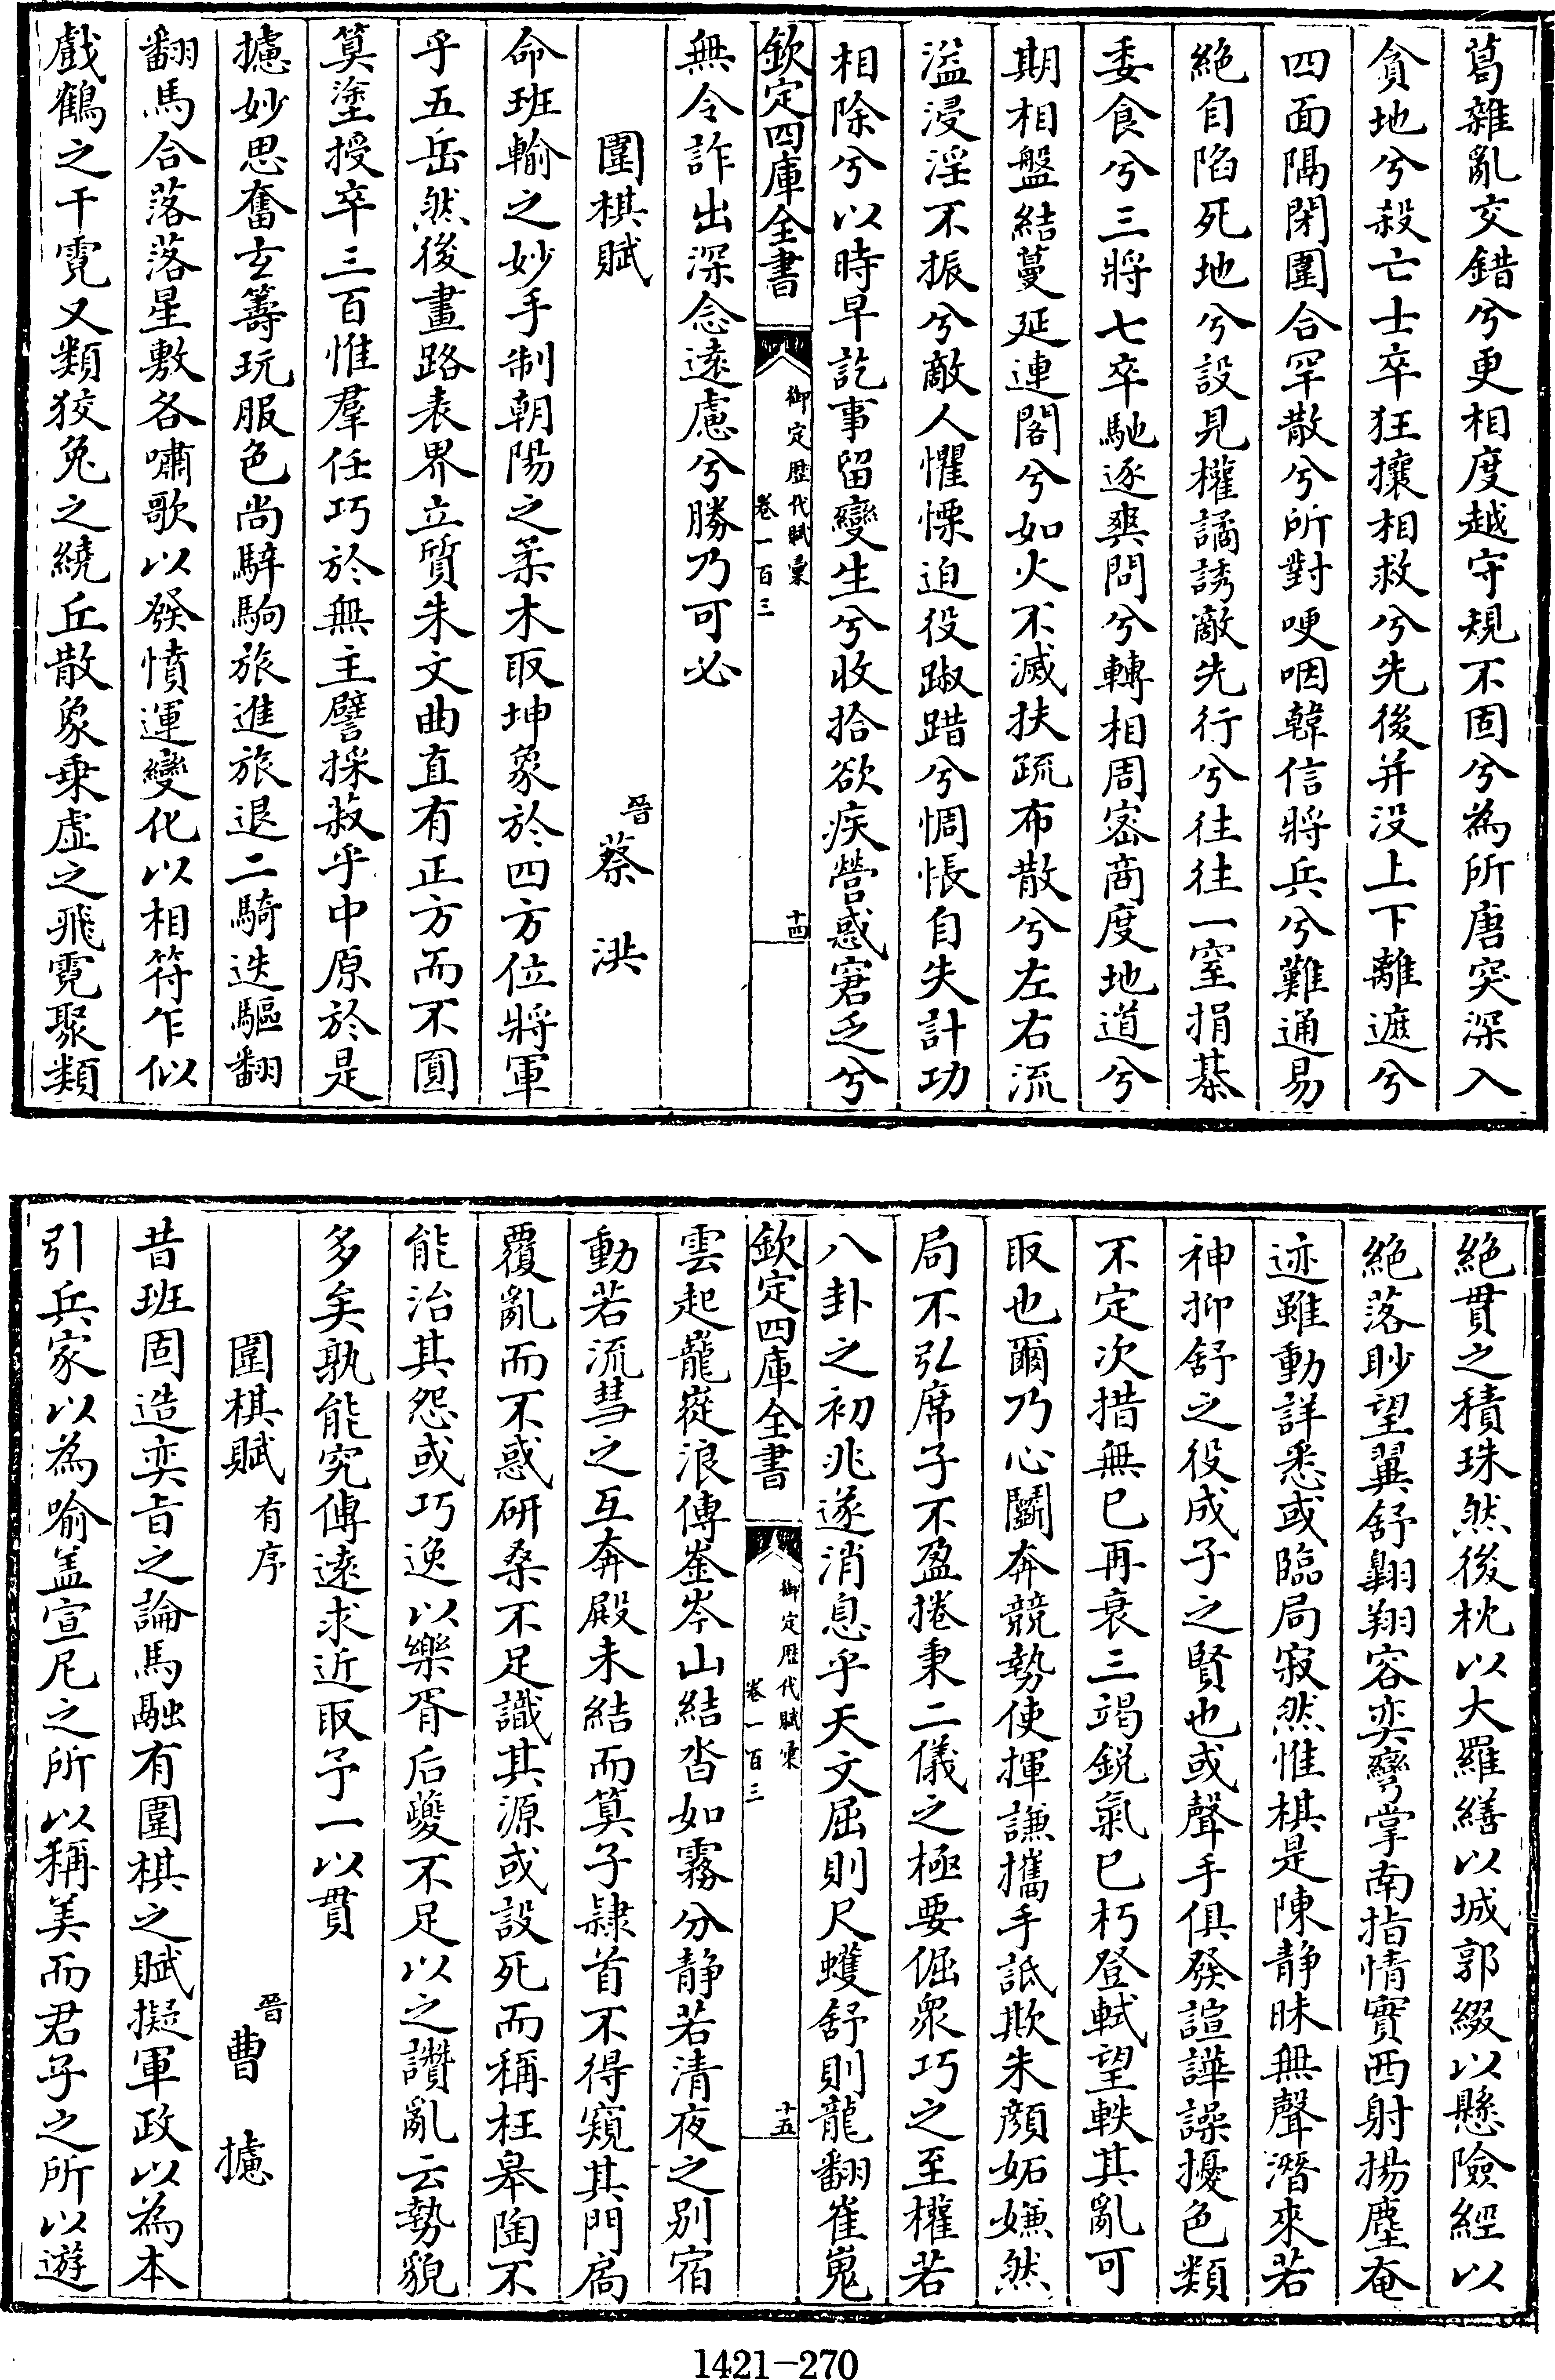 葛雜亂交錯兮更相度越守規不固兮為所唐突深入
貪地兮殺亡士卒狂攘相救兮先後并没上下離遮兮
四面隔閉圍合罕散兮所對哽咽韓信將兵兮難通易
絶自陷死地兮設見權譎誘敵先行兮往往一窒捐棊
委食兮三將七卒馳逐爽問兮轉相周密商度地道兮
期相盤結蔓延連閣兮如火不滅扶疏布散兮左右流
溢浸淫不振兮敵人懼慄迫役踧踖兮惆悵自失計功
相除兮以時早訖事留變生兮收拾欲疾營惑窘乏兮
欽定四庫全書
御定歴代賦彙
卷一百三
十四
無令詐出深念遠慮兮勝乃可必
圍棋賦
晉蔡洪
命班輸之妙手制朝陽之柔木取坤象於四方位將軍
乎五岳然後畫路表界立質朱文曲直有正方而不圓
算塗授卒三百惟羣任巧於無主譬採菽乎中原於是
攄妙思奮玄籌玩服色尚騂駒旅進旅退二騎迭驅翻
翻馬合落落星敷各嘯歌以發憤運變化以相符乍似
戲鶴之干霓又類狡兔之繞丘散象乗虚之飛霓聚類
絶貫之積珠然後枕以大羅繕以城郭綴以懸險經以
絶落眇望翼舒翺翔容奕彎掌南指情實西射揚塵奄
迹雖動詳悉或臨局寂然惟棋是陳静昧無聲潛來若
神抑舒之役成子之賢也或聲手俱發諠譁譟擾色類
不定次措無已再衰三竭鋭氣已朽登軾望軼其亂可
取也爾乃心鬬奔競勢使揮謙攜手詆欺朱顔妬嫌然
局不弘席子不盈捲秉二儀之極要倔衆巧之至權若
八卦之初兆遂消息乎天文屈則尺蠖舒則龍翻崔嵬
欽定四庫全書
御定歴代賦彙
卷一百三
十五
雲起巃嵸浪傳崟岑山結沓如霧分静若清夜之別宿
動若流彗之互奔殿未結而算子隷首不得窺其門扃
覆亂而不惑研桑不足識其源或設死而稱枉皋陶不
能治其怨或巧逸以樂胥后夔不足以之讚亂云勢貌
多矣孰能究傳遠求近取予一以貫
圍棋賦有序
晉曹攄
昔班固造奕㫖之論馬融有圍棋之賦擬軍政以為本
引兵家以為喻盖宣尼之所以稱美而君子之所以遊
1421-270